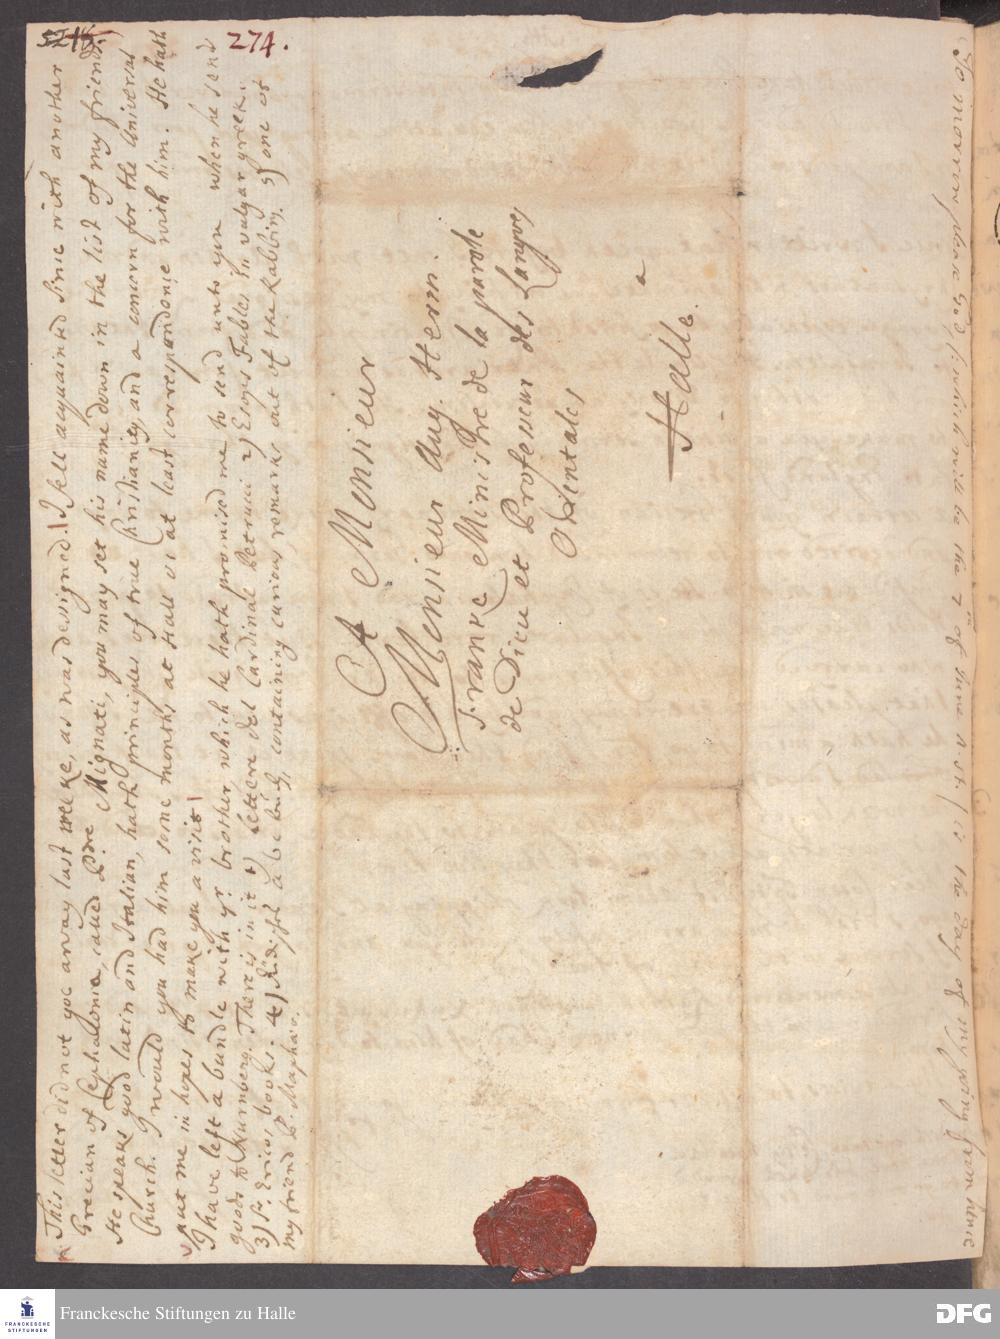 5215.
274.
This letter did not goe away last weeke, as was designed. I fell acquainted since with another
Grecian of Cephallonia, called Pdre Mignati, you may set his name down in the list of my friends.
He speaks good latin and Italian, hath principles of true Christianity, and a concern for the Universal
Church. I would you had him some months at Hall or at least correspondence with him. He hath
put me in hopes to make you a visit
I have left a bundle with yr. brother which he hath promised me to send unto you when he send
goods to Nurnberg. There is in it 1) lettere del Cardinal Petrucci 2) Esops Fables in vulgar greek.
3) Sr. books. 4) containing curious remarks out of the Rabbins. 5) one of
my friend P.
A Monsieur
Monsieur Aug. Herm.
Franke Ministre de la parole
de Dieu et Professeur des Langues
Orientales
a
Halle.
To morrow please God (which will be the 2 of June n. st.) is the day of my going from hence
FRANCKESCHE
STIFTUNGEN
Franckesche Stiftungen zu Halle
DFG